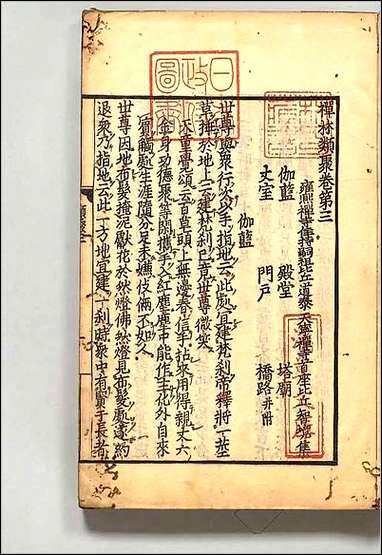 禪林類聚卷第三
雍熙禪寺住持嗣祖比丘道泰 天寧禪寺首座比丘智境 集
伽藍 殿堂 塔廟
丈室 門戶 橋路并附
伽藍
世尊與衆行次以手指地云此處宜建梵刹帝釋將一莖
草插於地上云建梵刹已竟世尊微笑
天童覺頌云百草頭上無邊春信手拈來用得親丈六
金身功德聚等閑攜手入紅塵塵中能作主化外自來
賓觸處生涯隨分足未嫌伎倆不如人
世尊因地布髮掩泥獻花於然燈佛然燈見布髮處遂約
退衆乃指地云此一方地宜建一刹時衆中有賢于長者